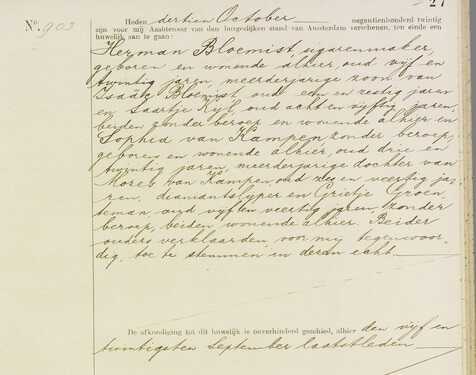 27
No. 903
Heden dertien October negentienhonderd twintig
zijn voor mij Ambtenaar van den burgerlijken stand van Amsterdam verschenen, ten einde een
huwelijk aan te gaan:
Herman Bloemist, sigarenmaker,
geboren en wonende alhier, oud vijf en
twintig jaren, meerderjarige zoon van
Isaäc Bloemist, oud een en zestig jaren
en Saartje Vijl, oud acht en vijftig jaren,
beiden zonder beroep en wonende alhier en
Sophia van Kampen, zonder beroep,
geboren en wonende alhier, oud drie en
twintig jaren, meerderjarige dochter van
Mozes van Kampen, oud zes en veertig ja-
ren, diamantslijper en Grietje Groen-
teman oud vijf en veertig jaren, zonder
beroep, beiden wonende alhier. Beider
ouders verklaarden voor mij tegenwoor-
dig, toe te stemmen in dezen echt.
De afkondiging tot dit huwelijk is onverhinderd geschied, alhier den vijf en
twintigsten September laatstleden